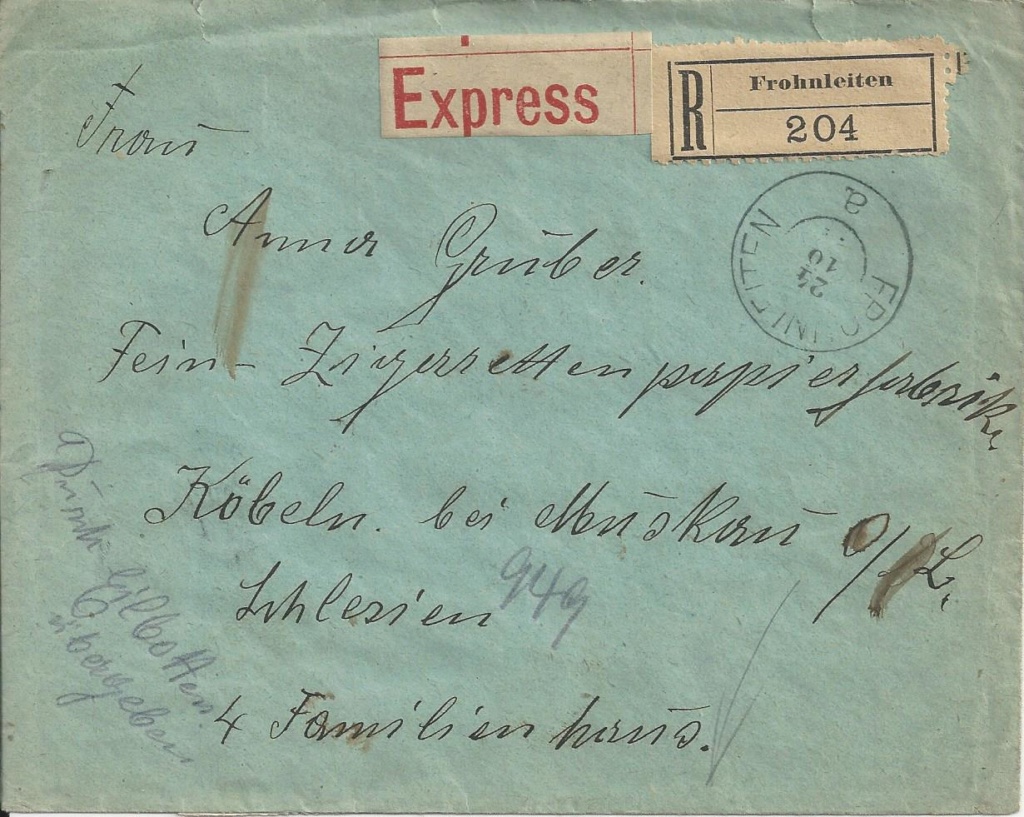 Express
R
Frohnleiten
204
a
FROHNLEITEN
24
10
Frau
Anna Gruber.
Fein- Zigarettenpapierfabrik
Köbeln. bei Muskau O/L.
Schlesien
949
4 Familienhaus.
Eilbotten
übergeben